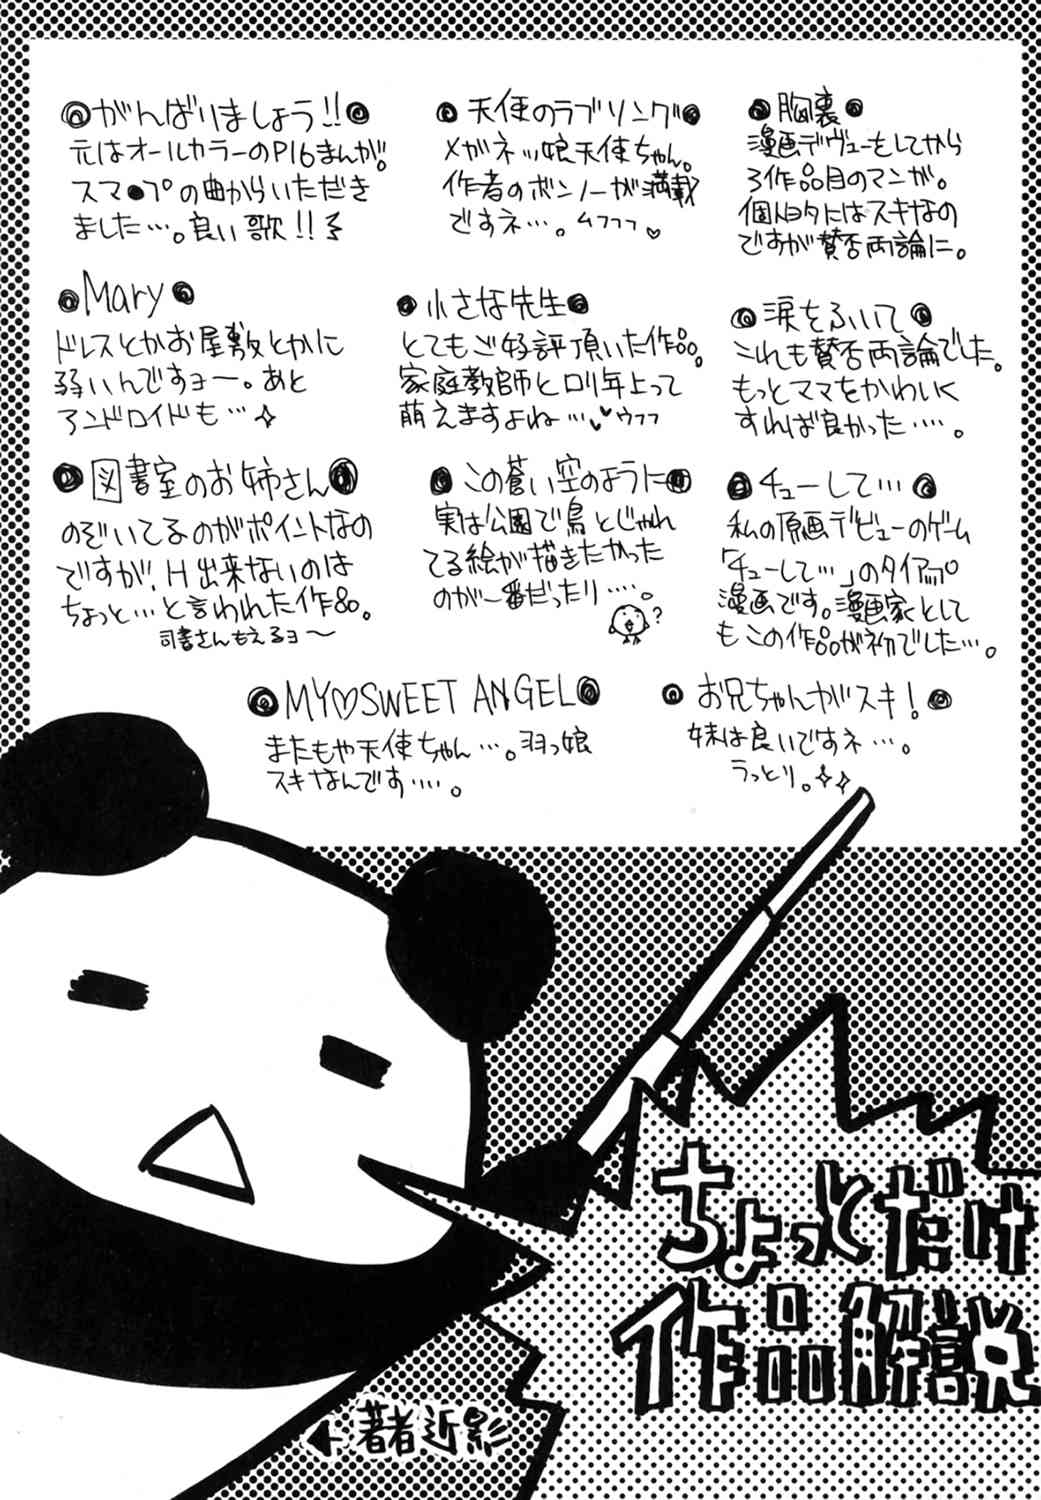 胸裏
漫画デヴューをしてから
3作品目のマンガ。
個人的にはスキなの
ですが賛否両論に。
天使のラブソング
メガネッ娘天使ちゃん。
作者のボンノーが満載
ですネ…。ムフフフ♡
がんばりましょう!!
元はオールカラーのP16まんが。
スマ●プの曲からいただき
ました…。良い歌!!
涙をふいて
これも賛否両論でした。
もっとママをかわいく
すれば良かった….。
小さな先生
とてもご好評頂いた作品。
家庭教師とロリ年上って
萌えますよね…♥ウフフ
Mary
ドレスとかお屋敷とかに
弱いんですョー。あと
アンドロイドも…✧
チューして…
私の原画デビューのゲーム
「チューして…」のタイアップ
漫画です。漫画家として
もこの作品が初でした…。
この蒼い空のように
実は公園で鳥とじゃれ
てる絵が描きたかった
のが一番だったり….
?
図書室のお姉さん
のぞいてるのがポイントなの
ですが、H出来ないのは
ちょっと…と言われた作品。
司書さんもえるョ〜
お兄ちゃんがスキ!
妹は良いですネ…。
うっとり。✧✧
MY♡SWEET ANGEL
またもや天使ちゃん…。羽っ娘
スキなんです….。
ちょっとだけ
作品解説
← 著者近影